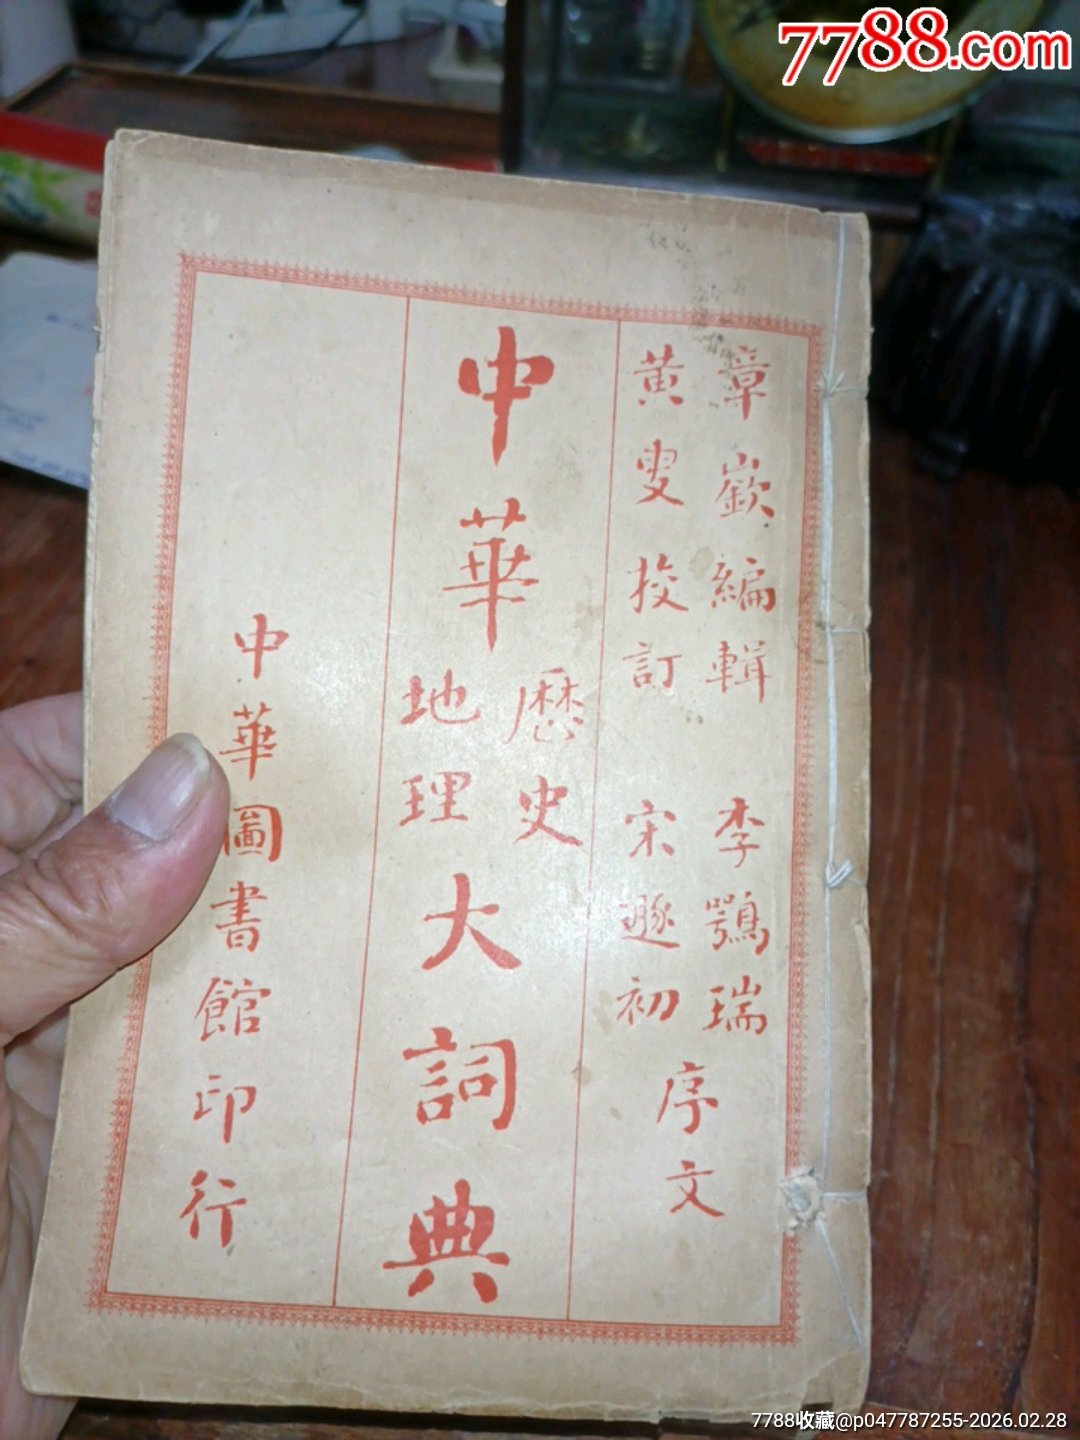 7788.com
章嶔編輯 李鶚瑞
黄叟挍訂 宋遯初
序文
中華歷史地理大詞典
中華圖書館印行
7788收藏@p047787255-2026.02.28